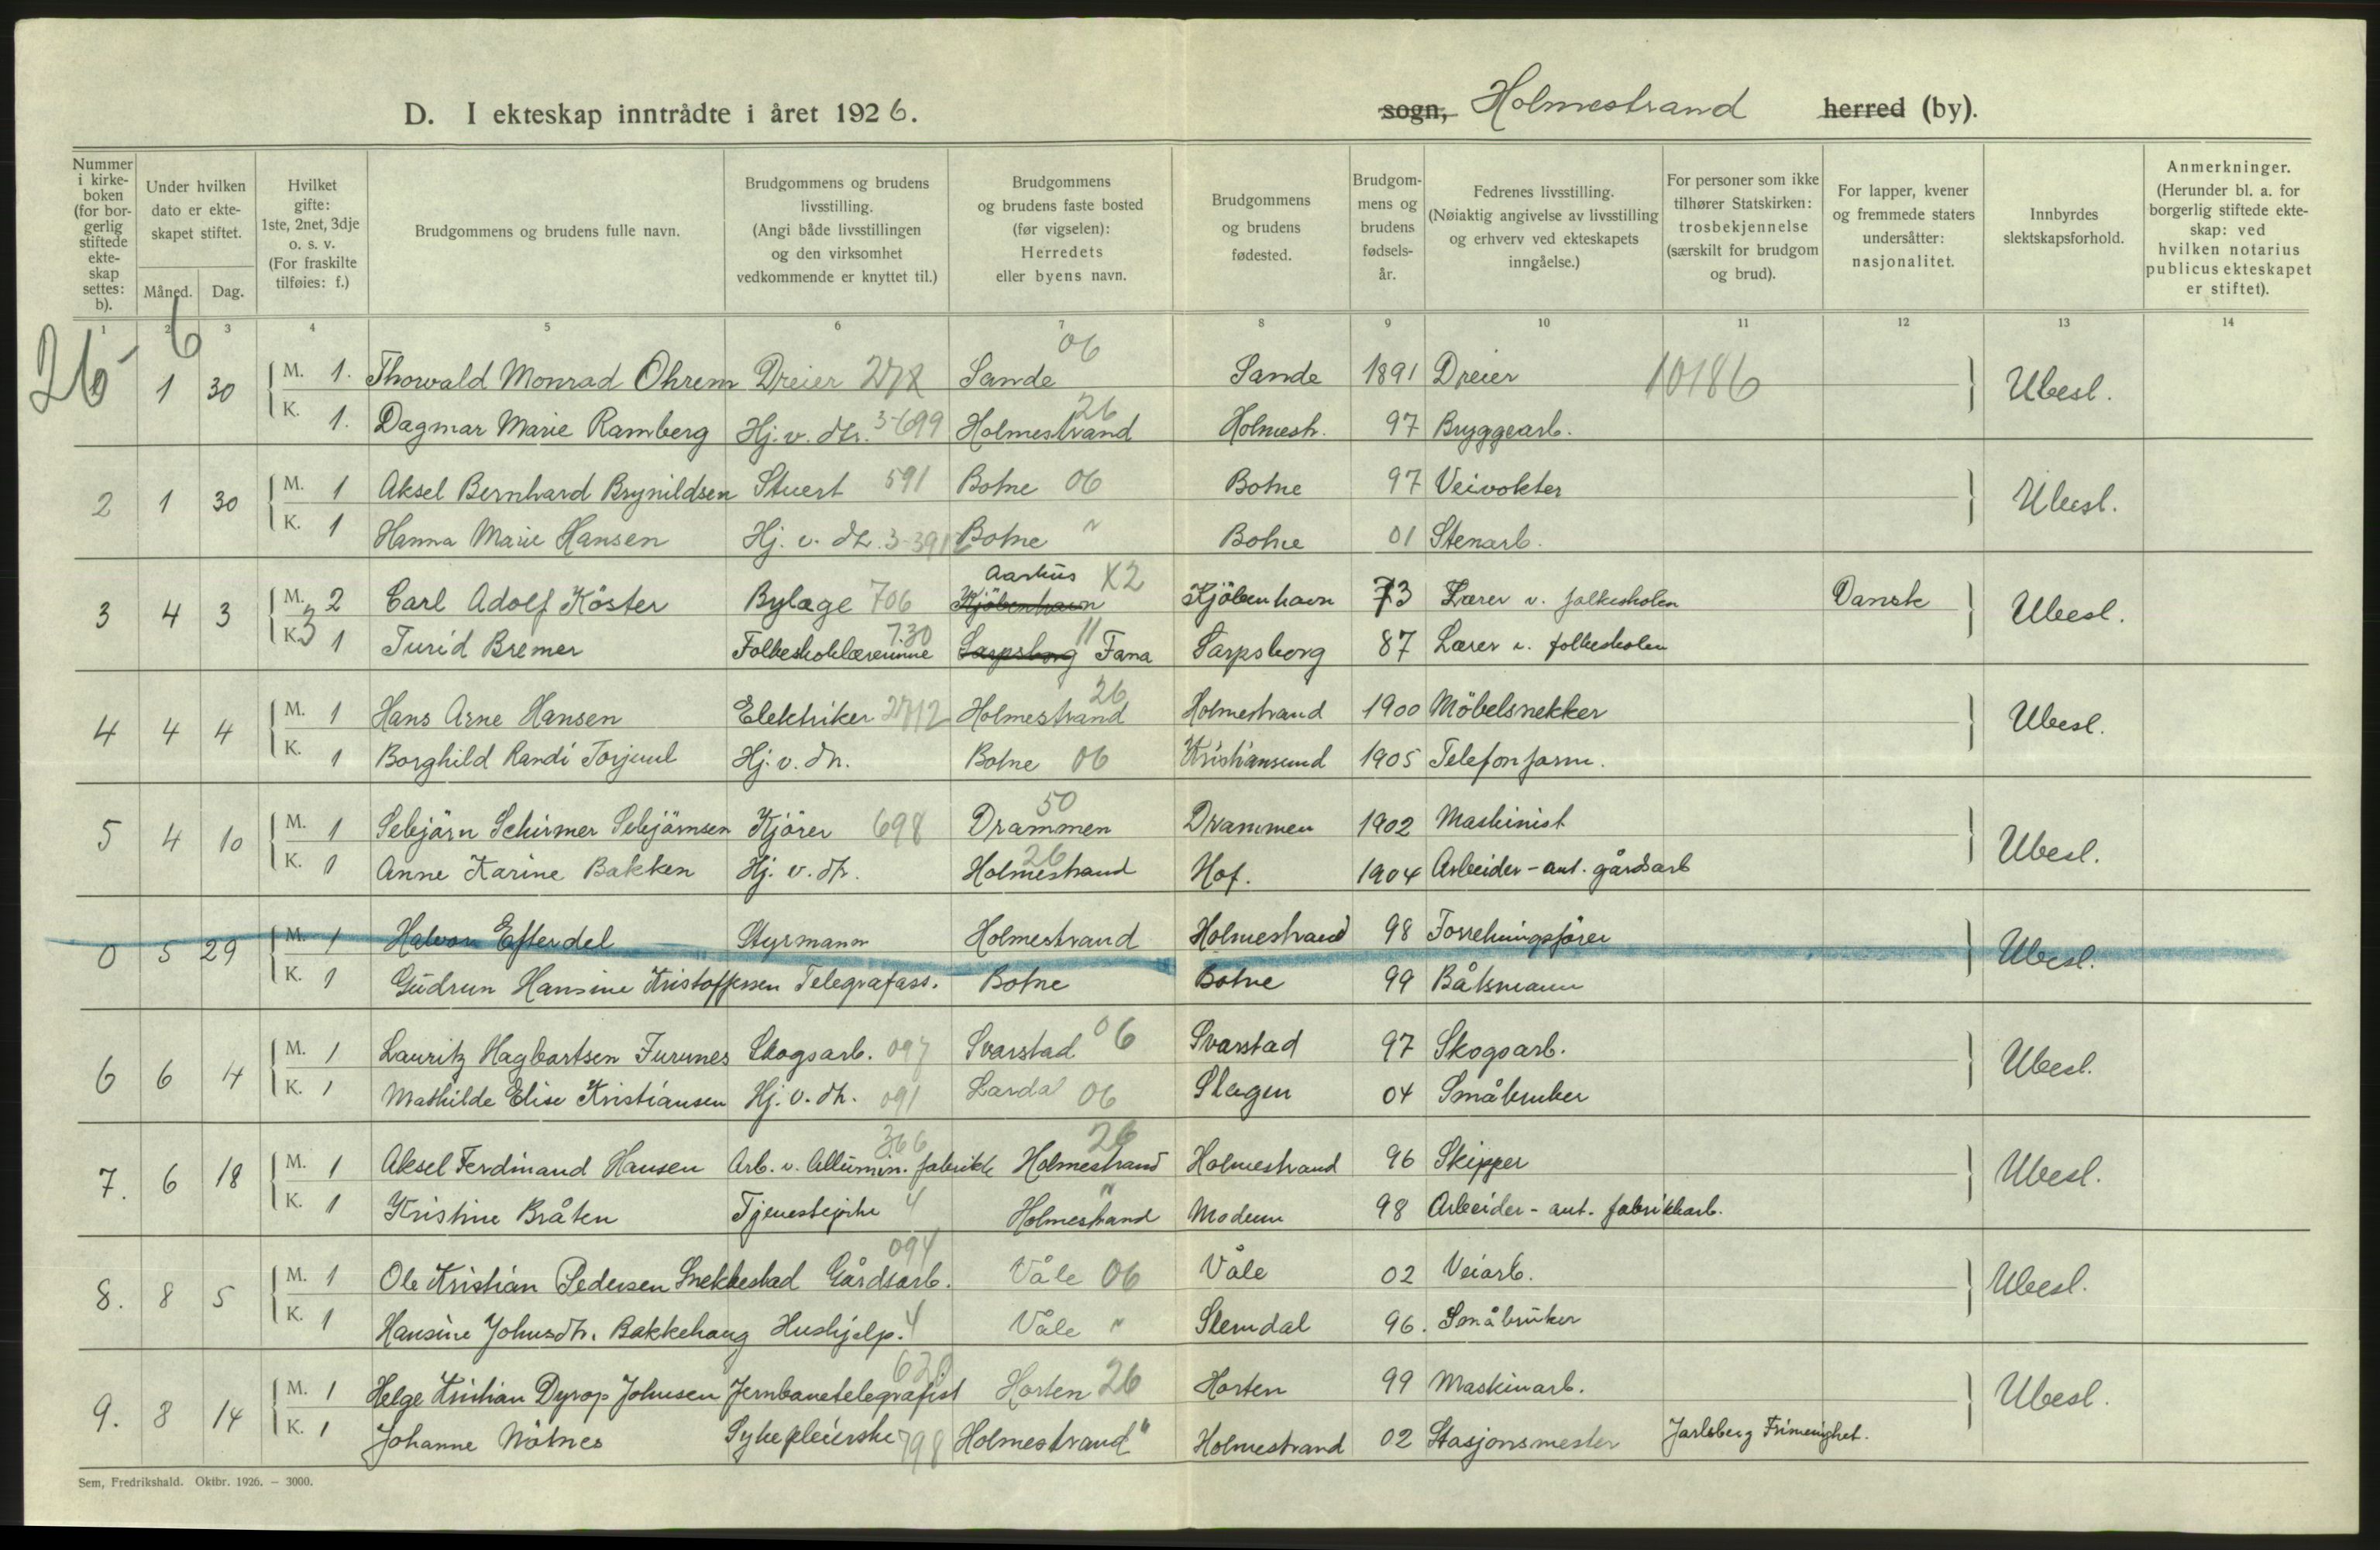 D. I ekteskap inntrådte i året 1926.
sogn, Holmestrand herred (by).
Nummer i kirkeboken (for borgerlig stiftede ekteskap settes: b).
Under hvilken dato er ekteskapet stiftet.
Måned. Dag.
Hvilket gifte: 1ste, 2net, 3dje o. s. v. (For fraskilte tilføies: f.)
Brudgommens og brudens fulle navn.
Brudgommens og brudens livsstilling. (Angi både livsstillingen og den virksomhet vedkommende er knyttet til.)
Brudgommens og brudens faste bosted (før vigselen): Herredets eller byens navn.
Brudgommens og brudens fødested.
Brudgommens og brudens fødselsår.
Fedrenes livsstilling. (Nøiaktig angivelse av livsstilling og erhverv ved ekteskapets inngåelse.)
For personer som ikke tilhører Statskirken: trosbekjennelse (særskilt for brudgom og brud).
For lapper, kvener og fremmede staters undersåtter: nasjonalitet.
Innbyrdes slektskapsforhold.
Anmerkninger. (Herunder bl. a. for borgerlig stiftede ekteskap: ved hvilken notarius publicus ekteskapet er stiftet).
1 2 3 4 5 6 7 8 9 10 11 12 13 14
26 6 06
1 30 M. 1. Thorvald Monrad Ohrem Dreier Sande Sande 1891 Dreier 10186 Ubesl.
K. 1. Dagmar Marie Ramberg Hj. v. dtr. 3-699 Holmestrand 26 Holmestr. 97 Bryggearb.
2 1 30 M. 1 Aksel Bernhard Brynildsen Stuert 591 Botne 06 Botne 97 Veivokter Ubesl.
K. 1 Hanna Marie Hansen Hj. v. dtr. 3-391 Botne " Botne 01 Stenarb.
Aarhus X2
3 4 3 M. 2 Carl Adolf Köster Bylæge 706 Kjöbenhavn Kjöbenhavn 73 Lærer v. folkeskolen Dansk Ubesl.
K. 3 1 Turid Bremer Folkeskolelærerinne 730 Sarpsborg Fana 11 Sarpsborg 87 Lærer v. folkeskolen
4 4 4 M. 1 Hans Arne Hansen Elektriker 2712 Holmestrand 26 Holmestrand 1900 Möbelsnekker Ubesl.
K. 1 Borghild Randi Torjuul Hj. v. dtr. Botne 06 Kristiansund 1905 Telefonform.
5 4 10 M. 1 Selejörn Schirmer Selejörnsen Kjörer 698 Drammen 50 Drammen 1902 Maskinist Ubesl.
K. 1 Anne Karine Bakken Hj. v. dtr. Holmestrand 26 Hof. 1904 Arbeider - ant. gårdsarb
0 5 29 M. 1 Halvor Efterdel Styrmann Holmestrand Holmestrand 98 Forretningsförer Ubesl.
K. 1 Gudrun Hansine Kristoffersen Telegrafass. Botne Botne 99 Båtsmann
6 6 4 M. 1 Lauritz Hagbartsen Furunes Skogsarb. 097 Svarstad 06 Svarstad 97 Skogsarb. Ubesl.
K. 1 Mathilde Elise Kristiansen Hj. v. dtr. 091 Lardal 06 Slagen 04 Småbruker
7. 6 18 M. 1 Aksel Ferdinand Hansen Arb. v. Allumin. fabrikk 366 Holmestrand 26 Holmestrand 96 Skipper Ubesl.
K. 1 Kristine Bråten Tjenestepike 4 Holmestrand " Modum 98 Arbeider - ant. fabrikkarb.
8. 8 5 M. 1 Ole Kristian Pedersen Snekkestad Gårdsarb. 094 Våle 06 Våle 02 Veiarb. Ubesl.
K. 1 Hansine Johnsdtr. Bakkehaug Hushjelp. 4 Våle " Slemdal 96. Småbruker
9. 8 14 M. 1 Helge Kristian Dyrop Johnsen Jernbanetelegrafist Horten 26 Horten 99 Maskinarb. Ubesl.
K. 1 Johanne Nötnes Sykepleierske 798 Holmestrand " Holmestrand 02 Stasjonsmester Jarlsberg Frimenighet.
Sem, Fredrikshald. Oktbr. 1926. – 3000.